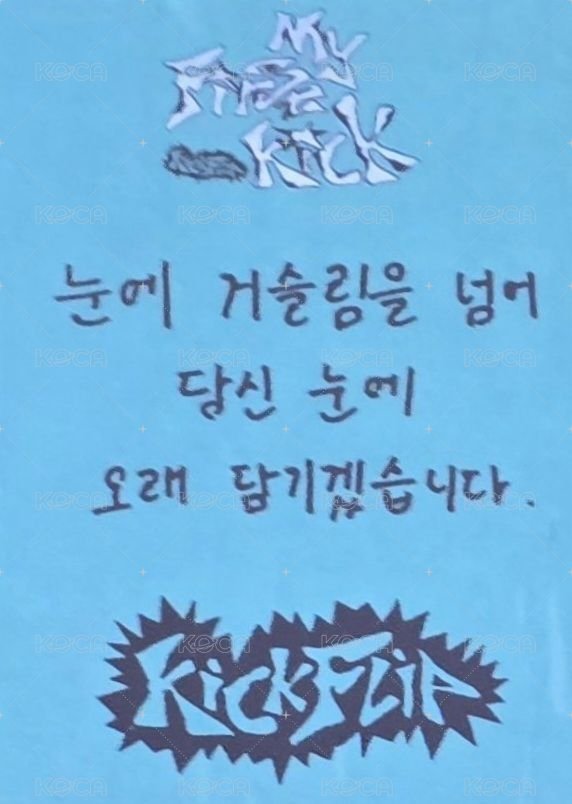 MY
FiRST
KicK
눈에 거슬림을 넘어
당신 눈에
오래 담기겠습니다.
KickFLiP